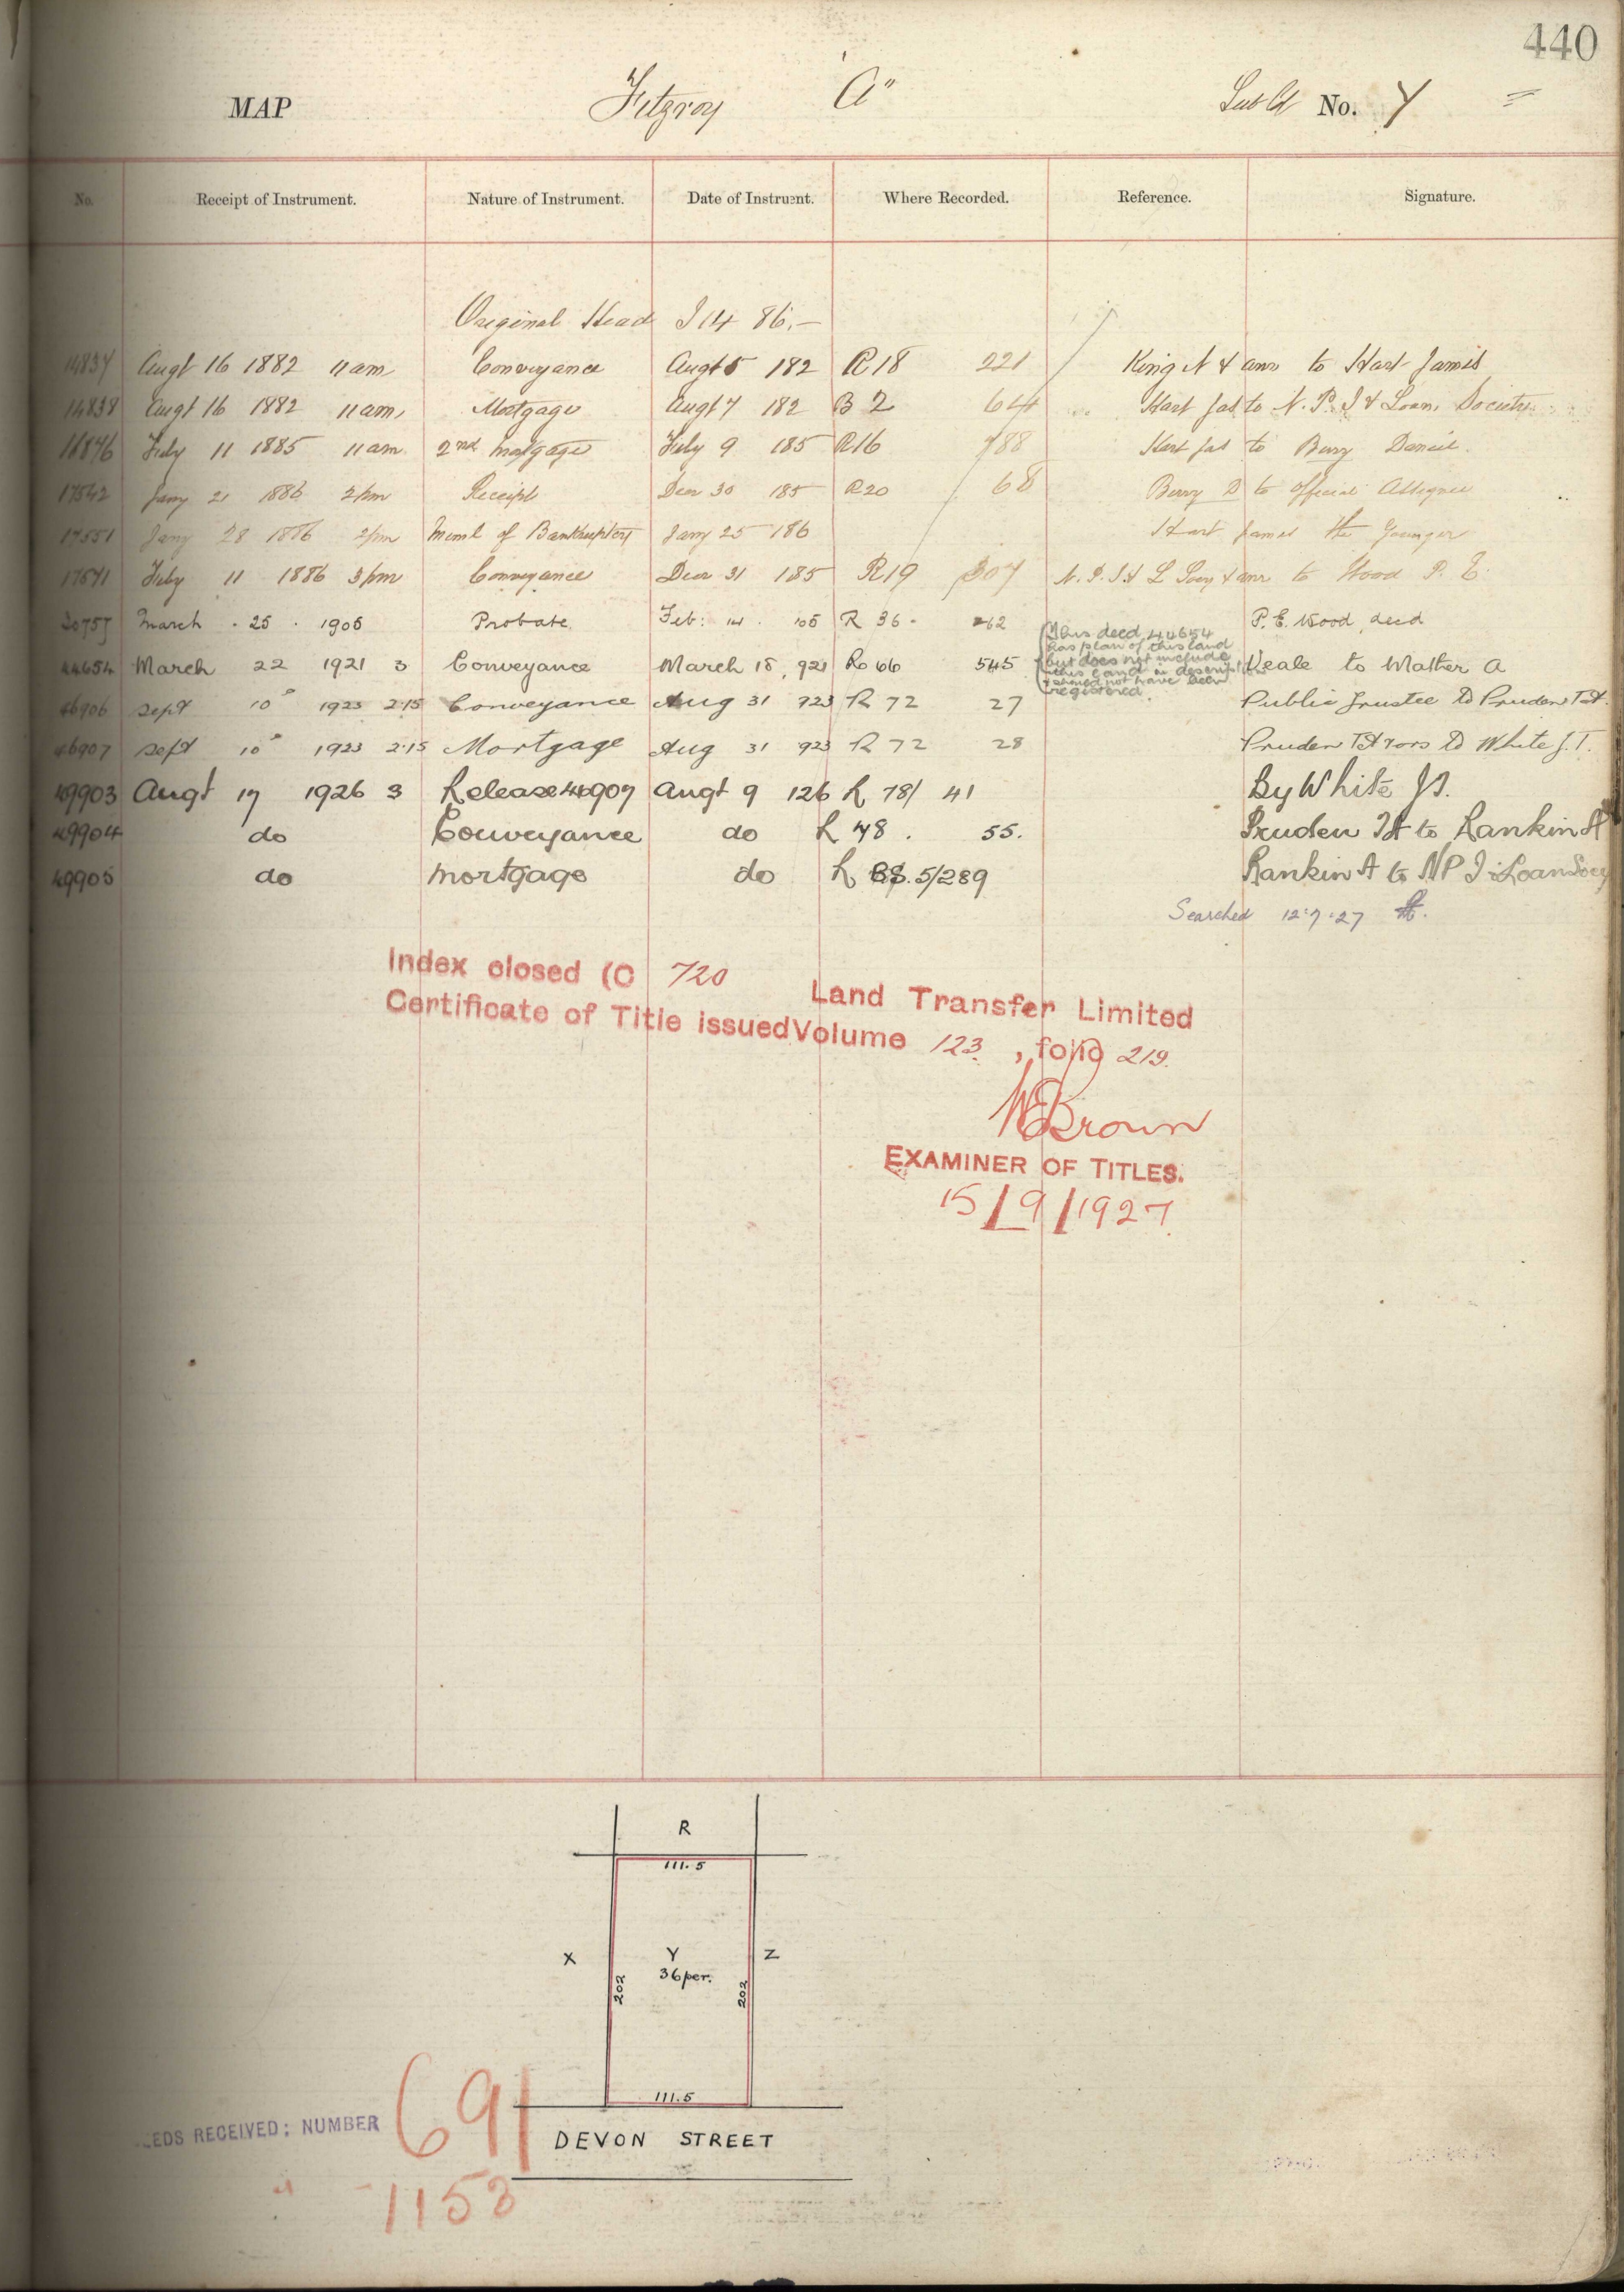 440
MAP Fitzroy "A" No. Y
No. Receipt of Instrument. Nature of Instrument. Date of Instrument. Where Recorded. Reference. Signature.
Original Head I 14 86.—
14837 Augt 16 1882 11am Conveyance Augt 5 182 R18 221 King N & anr to Hart James
14838 Augt 16 1882 11am, Mortgage Augt 7 182 B 2 64 Hart Jas to N. P. I & Loan Society
16846 July 11 1885 11am 2nd Mortgage July 9 185 R16 788 Hart Jas to Berry Daniel.
17542 Jany 21 1886 2pm Receipt Decr 30 185 R20 68 Berry D to Official Assignee
17551 Jany 28 1886 2pm Meml of Bankruptcy Jany 25 186 Hart James the Younger
July 11 1886 3pm Conveyance Decr 31 185 R19 307 N. P. I & L Socy & anr to Wood P. E.
March . 25 . 1905 Probate Feb: 14 . 105 R 36 . 262 P. E. Wood decd
44654 March 22 1921 3 Conveyance March 18, 921 Ro 66 545 Veale to Mather A
(This deed 44654
has plan of this land
but does not include
this land in description
& should not have been
registered.
46906 Sept 10 1923 2.15 Conveyance Aug 31 923 R 72 27 Public Trustee to Pruden T H.
46907 Sept 10 1923 2.15 Mortgage Aug 31 923 R 72 28 Pruden T H & ors to White J. T.
49903 Augt 17 1926 3 Release 46907 Augt 9 126 R 78/ 41 By White J T.
49904 do Conveyance do R 78 . 55. Pruden T H to Rankin A
49905 do Mortgage do R 88. 5/289 Rankin A to N P I & Loan Socy
Searched 12.7.27
Index closed (C 720 Land Transfer Limited
Certificate of Title issued Volume 123 , folio 219.
W E Brown
EXAMINER OF TITLES.
15/9/1927
R
111.5
X Y Z
36 per.
202 202
111.5
DEEDS RECEIVED: NUMBER 691
DEVON STREET
" - 1153